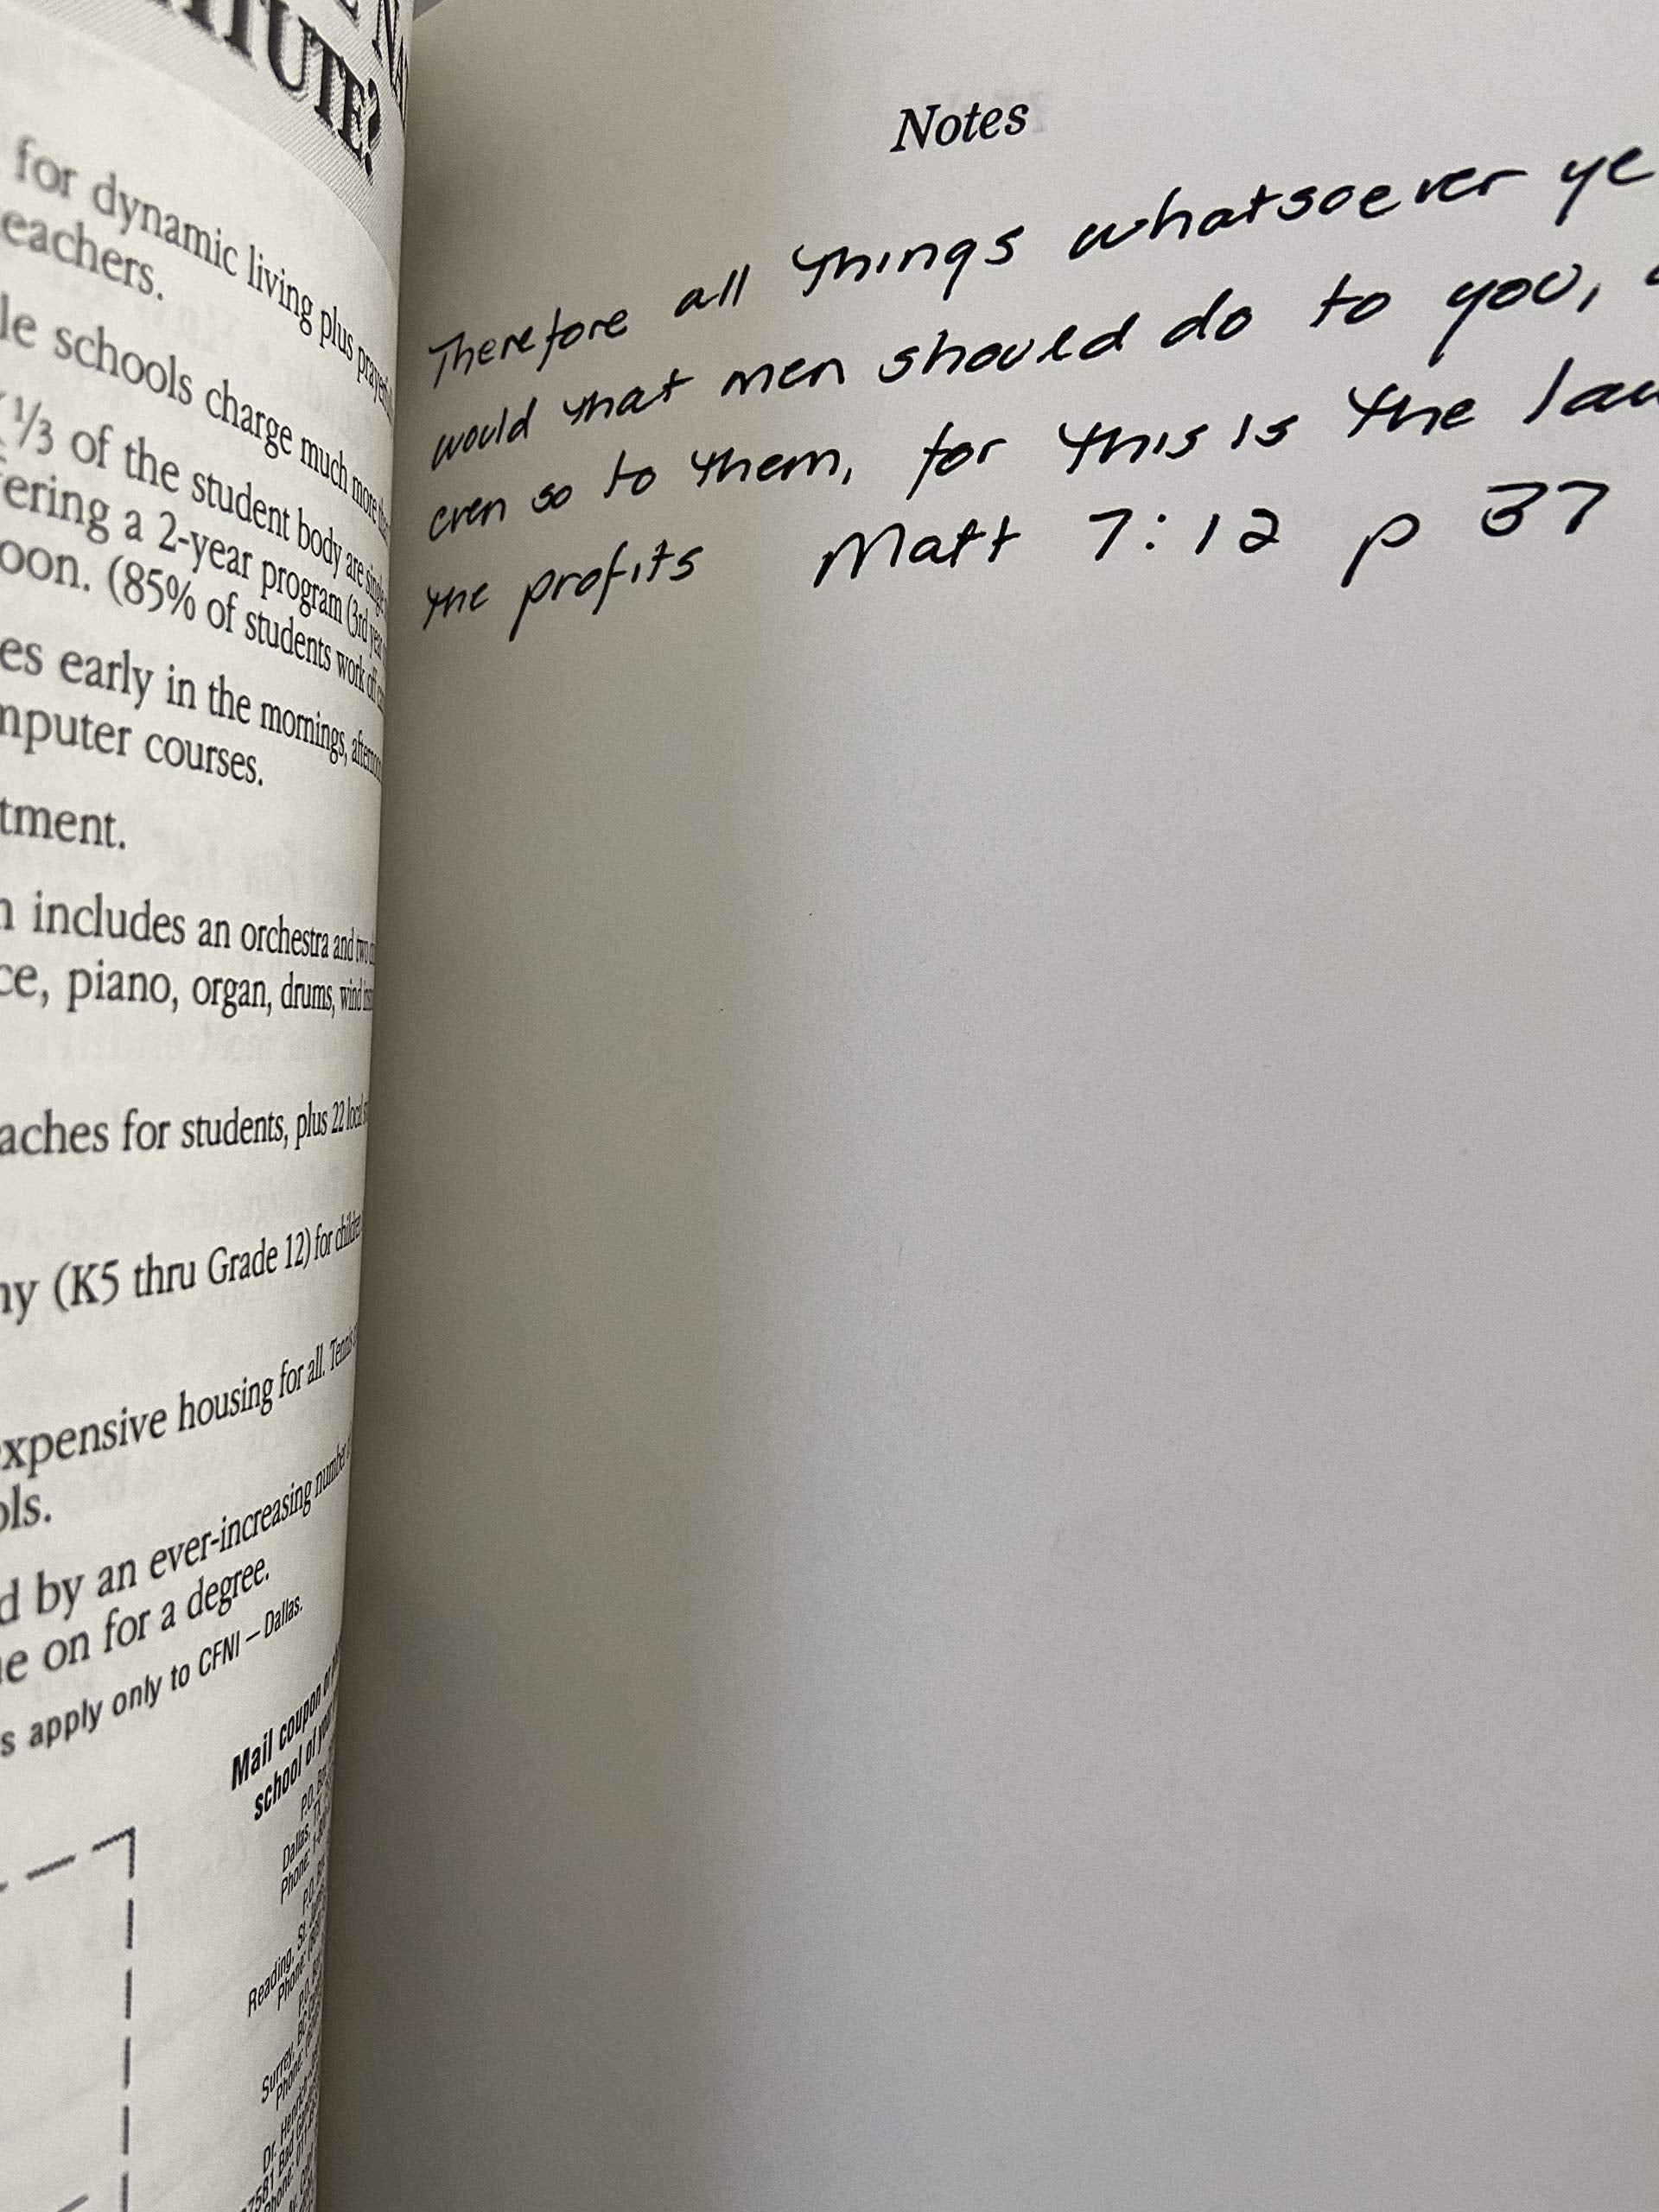 TUTE?
for dynamic living plus
eachers.
le schools charge much more
1/3 of the student body are single
ering a 2-year program (3rd year
oon. (85% of students work off
es early in the mornings,
mputer courses.
tment.
includes an orchestra and two
ce, piano, organ, drums, wind
aches for students, plus 22 local
ny (K5 thru Grade 12) for children
expensive housing for all. Tennis
ols.
d by an ever-increasing number
e on for a degree.
s apply only to CFNI – Dallas.
Mail coupon or
school of your
P.O. Box
Dallas, TX
Phone:
P.O. Box
Reading, St.
Phone:
Surrey, BC
Phone:
Notes
Therefore all things whatsoever ye
would that men should do to you,
even so to them, for this is the law
the profits Matt 7:12 p 37